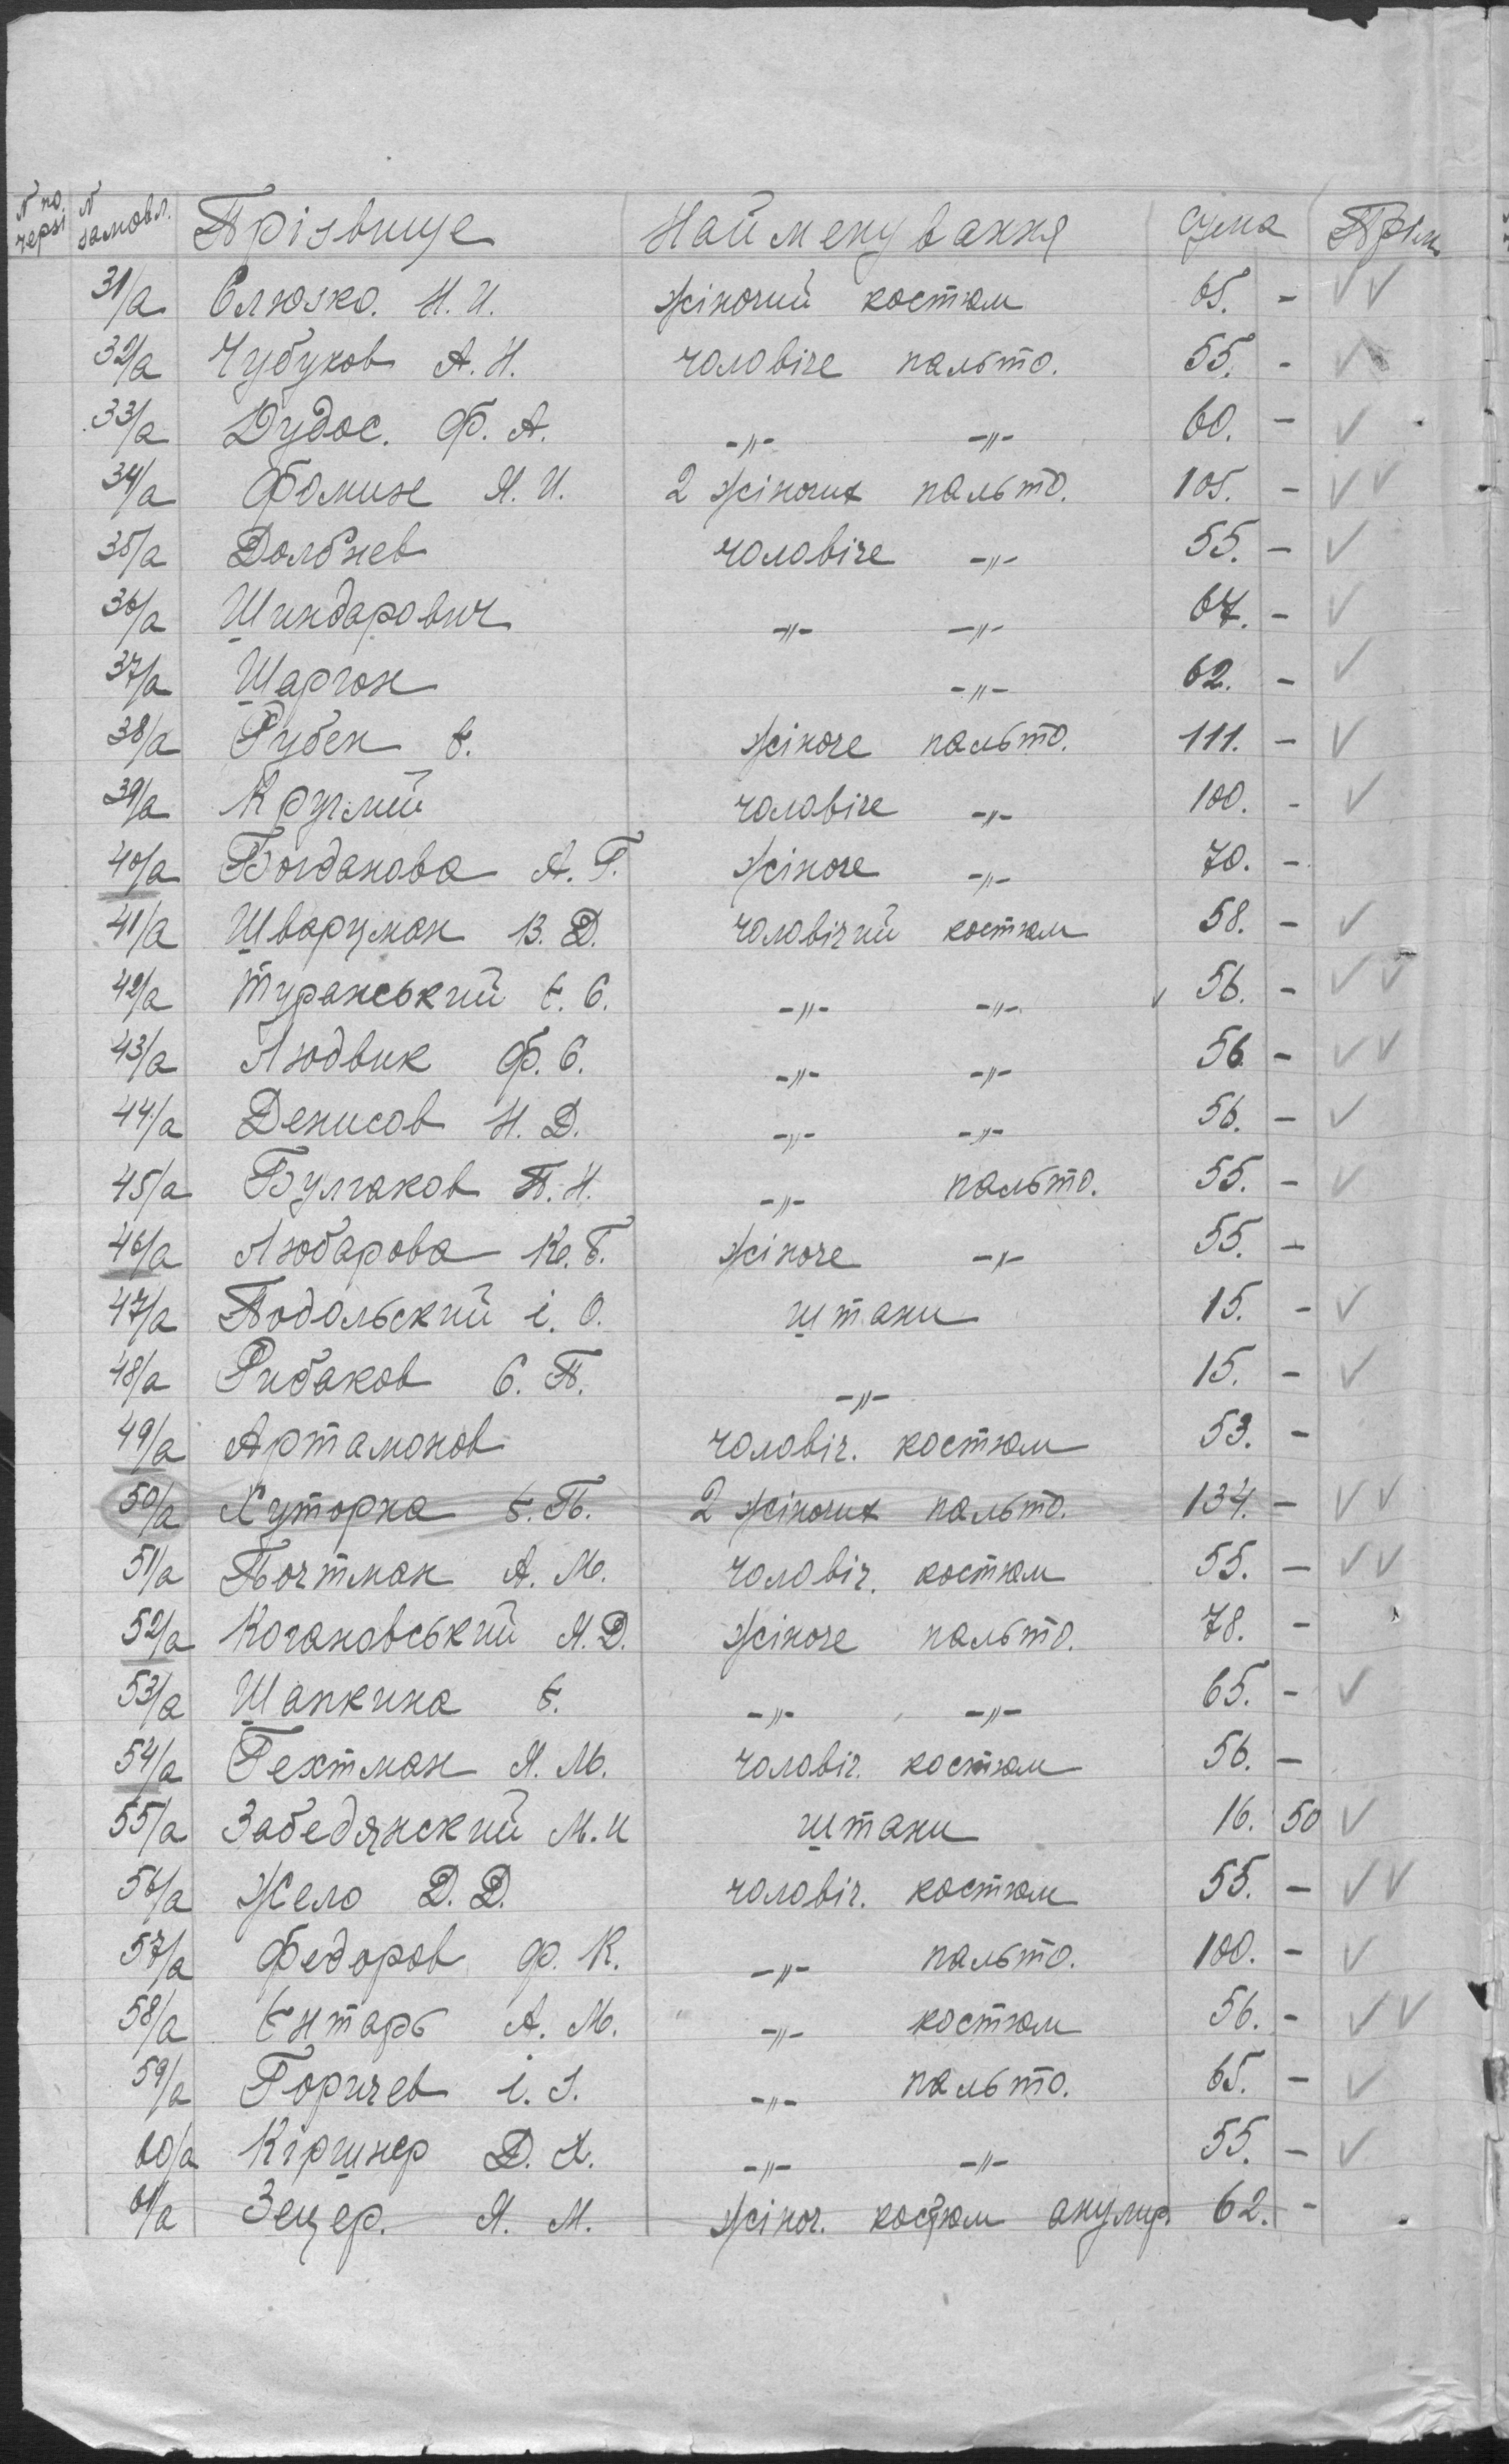 N по черзі N замовл. Прізвище Найменування сума Прім
31/а Слюзко. Н. И. жіночий костюм 65. - ✓✓
32/а Чубуков А. Н. чоловіче пальто. 55. - ✓
33/а Дудос. Ф. А. -„- -„- 60. - ✓
34/а Фомин Я. И. 2 жіночих пальто. 105. - ✓✓
35/а Долбнев чоловіче -„- 55. - ✓
36/а Шиндарович -„- -„- 67. - ✓
37/а Шаргон -„- 62. - ✓
38/а Рубен Є. жіноче пальто. 111. - ✓
39/а Круглий чоловіче -„- 100. - ✓
40/а Богданова А. Г. жіноче -„- 70. -
41/а Шварцман В. Д. чоловічий костюм 58. - ✓
42/а Туранський Є. С. -„- -„- 56. - ✓✓
43/а Людвик Ф. С. -„- -„- 56 - ✓✓
44/а Денисов Н. Д. -„- -„- 56. - ✓
45/а Булгаков П. Н. -„- пальто. 55. - ✓
46/а Любарова К. Б. жіноче -„- 55. -
47/а Подольский і. О. штани 15. - ✓
48/а Рибаков С. П. -„- 15. - ✓
49/а Артамонов чоловіч. костюм 53. -
50/а Хуторна Є. П. 2 жіночих пальто. 134. - ✓✓
51/а Почтман А. М. чоловіч. костюм 55. - ✓✓
52/а Когановський Я. Д. жіноче пальто. 78. -
53/а Шапкина Є. -„- -„- 65. - ✓
54/а Гехтман Я. М. чоловіч. костюм 56. -
55/а Забедянский М. И штани 16. 50 ✓
56/а Жело Д. Д. чоловіч. костюм 55. - ✓✓
57/а Федоров Ф. К. -„- пальто. 100. - ✓
58/а Єнтарь А. М. -„- костюм 56. - ✓✓
59/а Горичев і. І. -„- пальто. 65. - ✓
60/а Кіршнер Д. Х. -„- -„- 55. - ✓
61/а Зецер. Я. М. жіноч. костюм анулир. 62. -